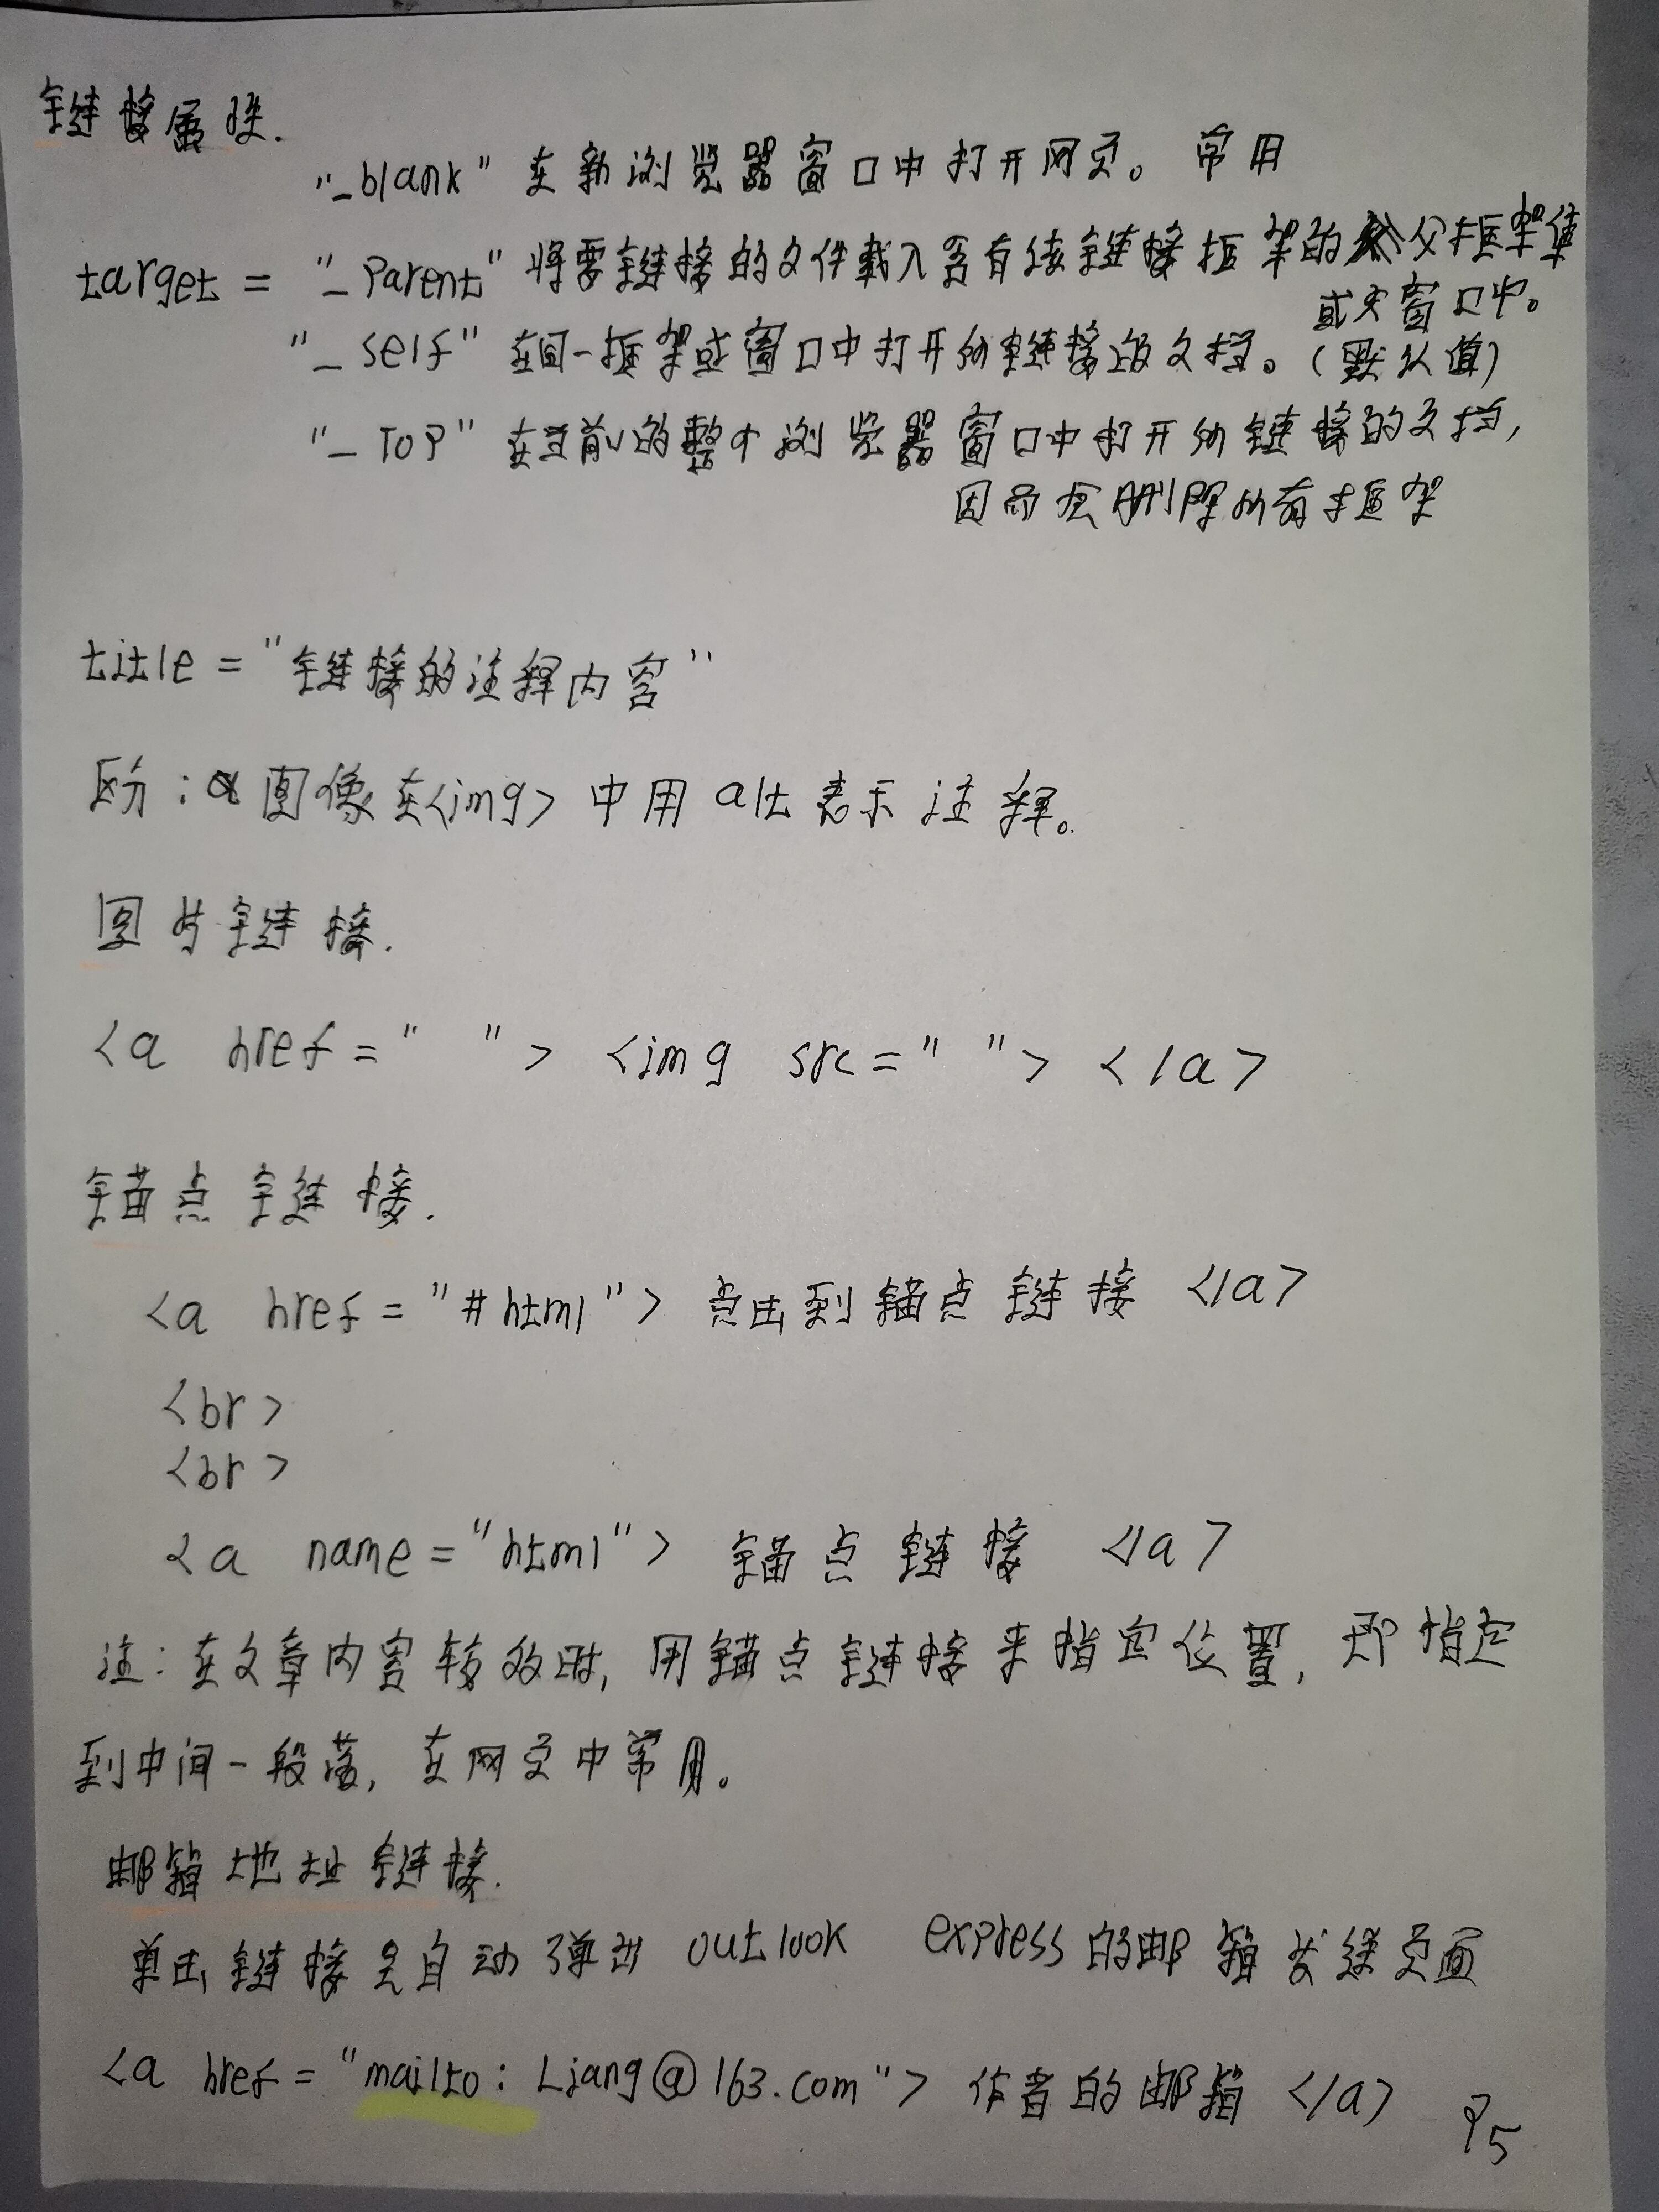 链接属性.
"_blank" 在新浏览器窗口中打开网页。 常用
target = "_Parent" 将要链接的文件载入含有该链接框架的父框架集
或父窗口中。
"_self" 在同一框架或窗口中打开所链接的文档。(默认值)
"_TOP" 在当前的整个浏览器窗口中打开所链接的文档,
因而会删除所有框架
title = "链接的注释内容"
区分:图像在<img> 中用 alt 表示注释。
图片链接.
<a href = " "> <img src = " "> </a>
锚点链接.
<a href = "#html"> 点击到锚点链接 </a>
<br>
<br>
<a name = "html"> 锚点链接 </a>
注:在文章内容较多时, 用锚点链接来指定位置, 即指定
到中间一段落, 在网页中常用。
邮箱地址链接.
单击链接是自动弹出 outlook express 的邮箱发送页面
<a href = "mailto: Liang@163.com"> 作者的邮箱 </a>
P5